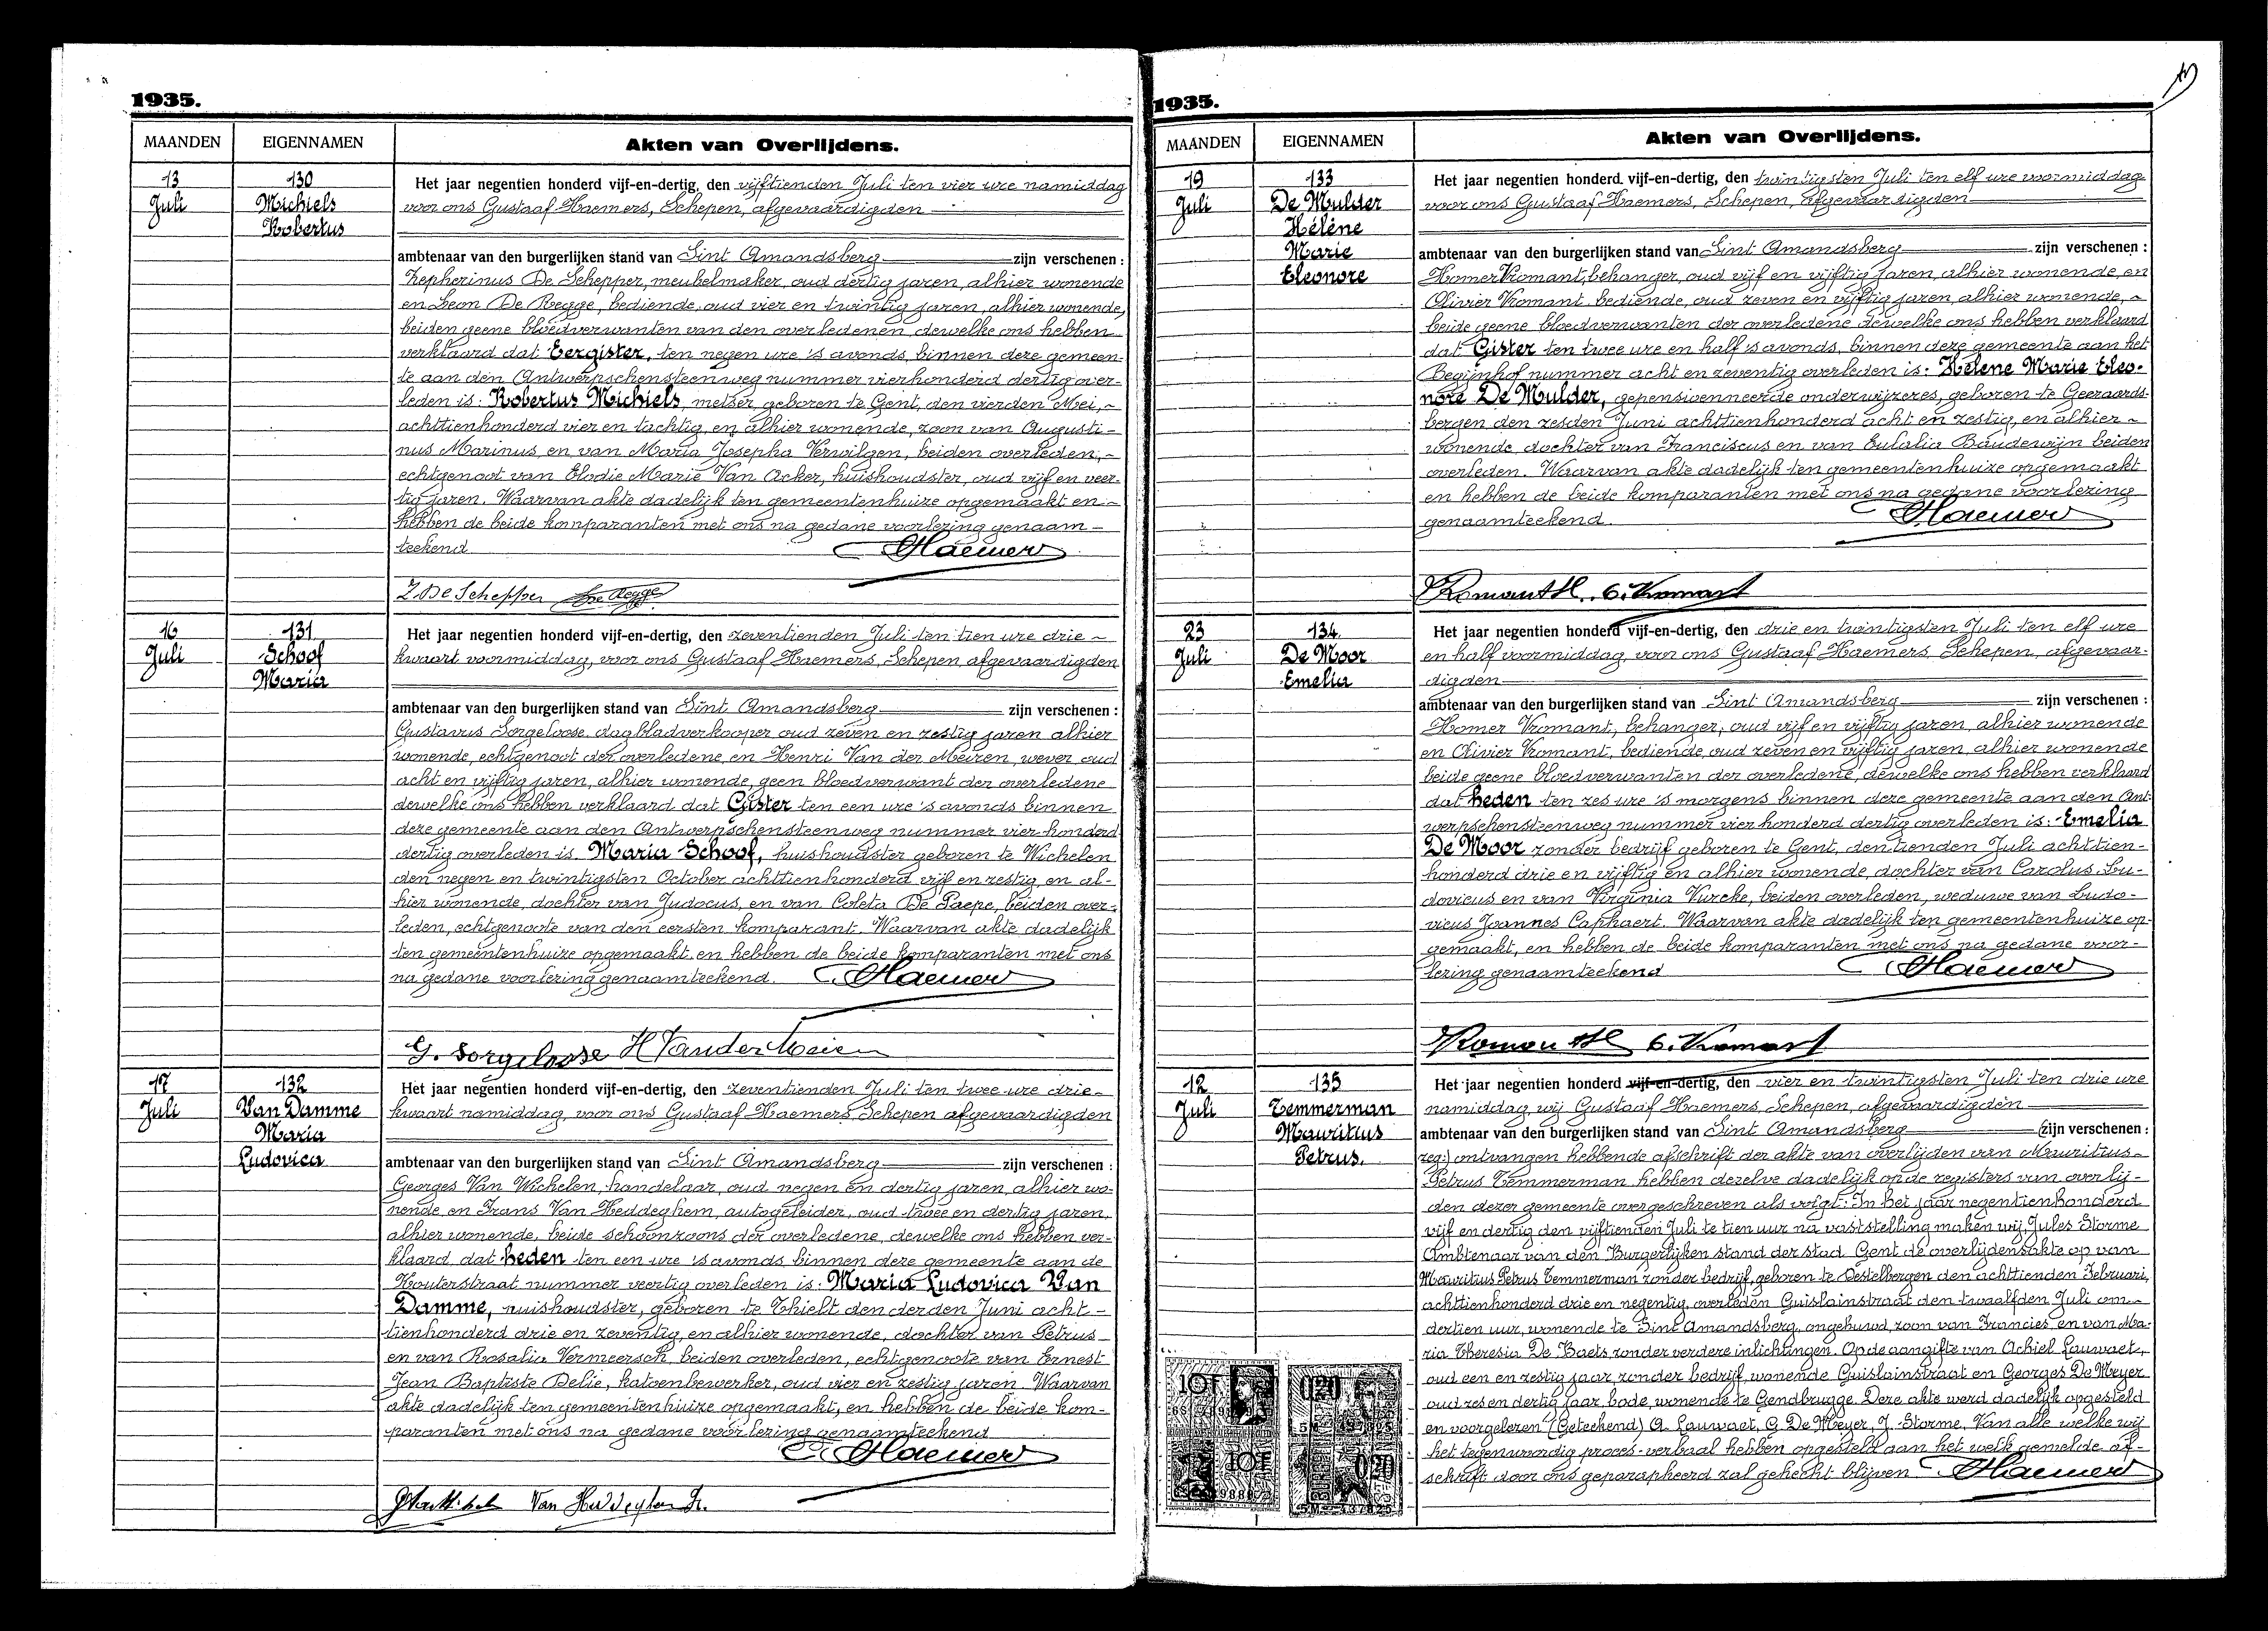 1935.
MAANDEN
EIGENNAMEN
Akten van Overlijdens.
13
Juli
130
Michiels
Robertus
Het jaar negentien honderd vijf-en-dertig, den vijftienden Juli ten vier ure namiddag
voor ons Gustaaf Haemers, Schepen, afgevaardigden
ambtenaar van den burgerlijken stand van Sint Amandsberg zijn verschenen :
Zepherinus De Schepper, meubelmaker, oud dertig jaren, alhier wonende
en Leon De Regge, bediende, oud vier en twintig jaren, alhier wonende,
beiden geene bloedverwanten van den overledenen, dewelke ons hebben
verklaard dat Eergister, ten negen ure 's avonds, binnen deze gemeen-
te aan den Antwerpschensteenweg nummer vierhonderd dertig over-
leden is: Robertus Michiels, metser, geboren te Gent, den vierden Mei,
achttienhonderd vier en tachtig, en alhier wonende, zoon van Augusti-
nus Marinus, en van Maria Josepha Verwilgen, beiden overleden,
echtgenoot van Elodie Marie Van Acker, huishoudster, oud vijf en veer-
tig jaren. Waarvan akte dadelijk ten gemeentenhuize opgemaakt en
hebben de beide komparanten met ons na gedane voorlezing genaam-
teekend
Haemers
Z. De Schepper
De Regge
16
Juli
131
Schoof
Maria
Het jaar negentien honderd vijf-en-dertig, den zeventienden Juli ten tien ure drie
kwaart voormiddag, voor ons Gustaaf Haemers, Schepen, afgevaardigden
ambtenaar van den burgerlijken stand van Sint Amandsberg zijn verschenen :
Gustavus Sorgeloose, dagbladverkooper oud zeven en zestig jaren alhier
wonende, echtgenoot der overledene, en Henri Van der Meiren, wever, oud
acht en vijftig jaren, alhier wonende, geen bloedverwant der overledene
dewelke ons hebben verklaard dat Gister ten een ure 's avonds binnen
deze gemeente aan den Antwerpschensteenweg nummer vier honderd
dertig overleden is Maria Schoof, huishoudster geboren te Wichelen
den negen en twintigsten October achttienhonderd vijf en zestig, en al-
hier wonende, dochter van Judocus, en van Coleta De Paepe, beiden over-
leden, echtgenoote van den eersten komparant. Waarvan akte dadelijk
ten gemeentenhuize opgemaakt en hebben de beide komparanten met ons
na gedane voorlezing genaamteekend.
Haemers
G. Sorgeloose H Vander Meiren
17
Juli
132
Van Damme
Maria
Ludovica
Het jaar negentien honderd vijf-en-dertig, den zeventienden Juli ten twee ure drie-
kwaart namiddag, voor ons Gustaaf Haemers Schepen afgevaardigden
ambtenaar van den burgerlijken stand van Sint Amandsberg zijn verschenen :
Georges Van Wichelen, handelaar, oud negen en dertig jaren, alhier wo-
nende, en Frans Van Heddeghem, autogeleider, oud twee en dertig jaren,
alhier wonende, beide schoonzoons der overledene, dewelke ons hebben ver-
klaard dat heden ten een ure 's avonds binnen deze gemeente aan de
Houterstraat nummer veertig overleden is: Maria Ludovica Van
Damme, huishoudster, geboren te Thielt den derden Juni acht-
tienhonderd drie en zeventig, en alhier wonende, dochter van Petrus
en van Rosalia Vermeersch, beiden overleden, echtgenoote van Ernest
Jean Baptiste Delie, katoenbewerker, oud vier en zestig jaren. Waarvan
akte dadelijk ten gemeentenhuize opgemaakt, en hebben de beide kom-
paranten met ons na gedane voorlezing genaamteekend
Haemers
Van Heddeghem Fr.
1935.
MAANDEN
EIGENNAMEN
Akten van Overlijdens.
19
Juli
133
De Mulder
Hélène
Marie
Eleonore
Het jaar negentien honderd vijf-en-dertig, den twintigsten Juli ten elf ure voormiddag
voor ons Gustaaf Haemers, Schepen, afgevaardigden
ambtenaar van den burgerlijken stand van Sint Amandsberg zijn verschenen :
Homer Vromant, behanger, oud vijf en vijftig jaren, alhier wonende, en
Olivier Vromant, bediende, oud zeven en vijftig jaren, alhier wonende,
beide geene bloedverwanten der overledene dewelke ons hebben verklaard
dat Gister ten twee ure en half 's avonds, binnen deze gemeente aan het
Begijnhof nummer acht en zeventig overleden is: Hélène Marie Eleo-
nore De Mulder, gepensionneerde onderwijzeres, geboren te Geeraards-
bergen den zesden Juni achttienhonderd acht en zestig, en alhier
wonende, dochter van Franciscus en van Eulalia Baudewijn beiden
overleden. Waarvan akte dadelijk ten gemeentenhuize opgemaakt
en hebben de beide komparanten met ons na gedane voorlezing
genaamteekend.
Haemers
Vromant H. O. Vromant
23
Juli
134
De Moor
Emelia
Het jaar negentien honderd vijf-en-dertig, den drie en twintigsten Juli ten elf ure
en half voormiddag, voor ons Gustaaf Haemers, Schepen, afgevaar-
digden
ambtenaar van den burgerlijken stand van Sint Amandsberg zijn verschenen :
Homer Vromant, behanger, oud vijf en vijftig jaren, alhier wonende
en Olivier Vromant, bediende, oud zeven en vijftig jaren, alhier wonende
beide geene bloedverwanten der overledene, dewelke ons hebben verklaard
dat heden ten zes ure 's morgens binnen deze gemeente aan den Ant-
werpschensteenweg nummer vier honderd dertig overleden is: Emelia
De Moor zonder bedrijf geboren te Gent, den tienden Juli achttien-
honderd drie en vijftig en alhier wonende, dochter van Carolus Lu-
dovicus en van Virginia Vurcke, beiden overleden, weduwe van Ludo-
vicus Joannes Caphaert. Waarvan akte dadelijk ten gemeentenhuize op-
gemaakt, en hebben de beide komparanten met ons na gedane voor-
lezing genaamteekend
Haemers
Vromant H O. Vromant
12
Juli
135
Temmerman
Mauritius
Petrus.
Het jaar negentien honderd vijf-en-dertig, den vier en twintigsten Juli ten drie ure
namiddag wij Gustaaf Haemers, Schepen, afgevaardigden
ambtenaar van den burgerlijken stand van Sint Amandsberg (zijn verschenen :
zeg:) ontvangen hebbende afschrift der akte van overlijden van Mauritius
Petrus Temmerman hebben dezelve dadelijk op de registers van overlij-
den dezer gemeente overgeschreven als volgt: In het jaar negentienhonderd
vijf en dertig den vijftienden Juli te tien uur na vaststelling maken wij Jules Storme
Ambtenaar van den Burgerlijken stand der stad Gent de overlijdensakte op van
Mauritius Petrus Temmerman zonder bedrijf, geboren te Destelbergen den achttienden Februari,
achttienhonderd drie en negentig, overleden Guislainstraat den twaalfden Juli om
dertien uur, wonende te Sint Amandsberg, ongehuwd, zoon van Francies en van Ma-
ria Theresia De Baets, zonder verdere inlichtingen. Op de aangifte van Achiel Lauwaet,
oud een en zestig jaar, zonder bedrijf wonende Guislainstraat en Georges De Meyer
oud zes en dertig jaar, bode, wonende te Gendbrugge. Deze akte werd dadelijk opgesteld
en voorgelezen (Geteekend) A. Lauwaet, G. De Meyer, J. Storme. Van alle welke wij
het tegenwoordig proces-verbaal hebben opgesteld aan het welk gemelde af-
schrift door ons geparapheerd zal gehecht blijven
Haemers